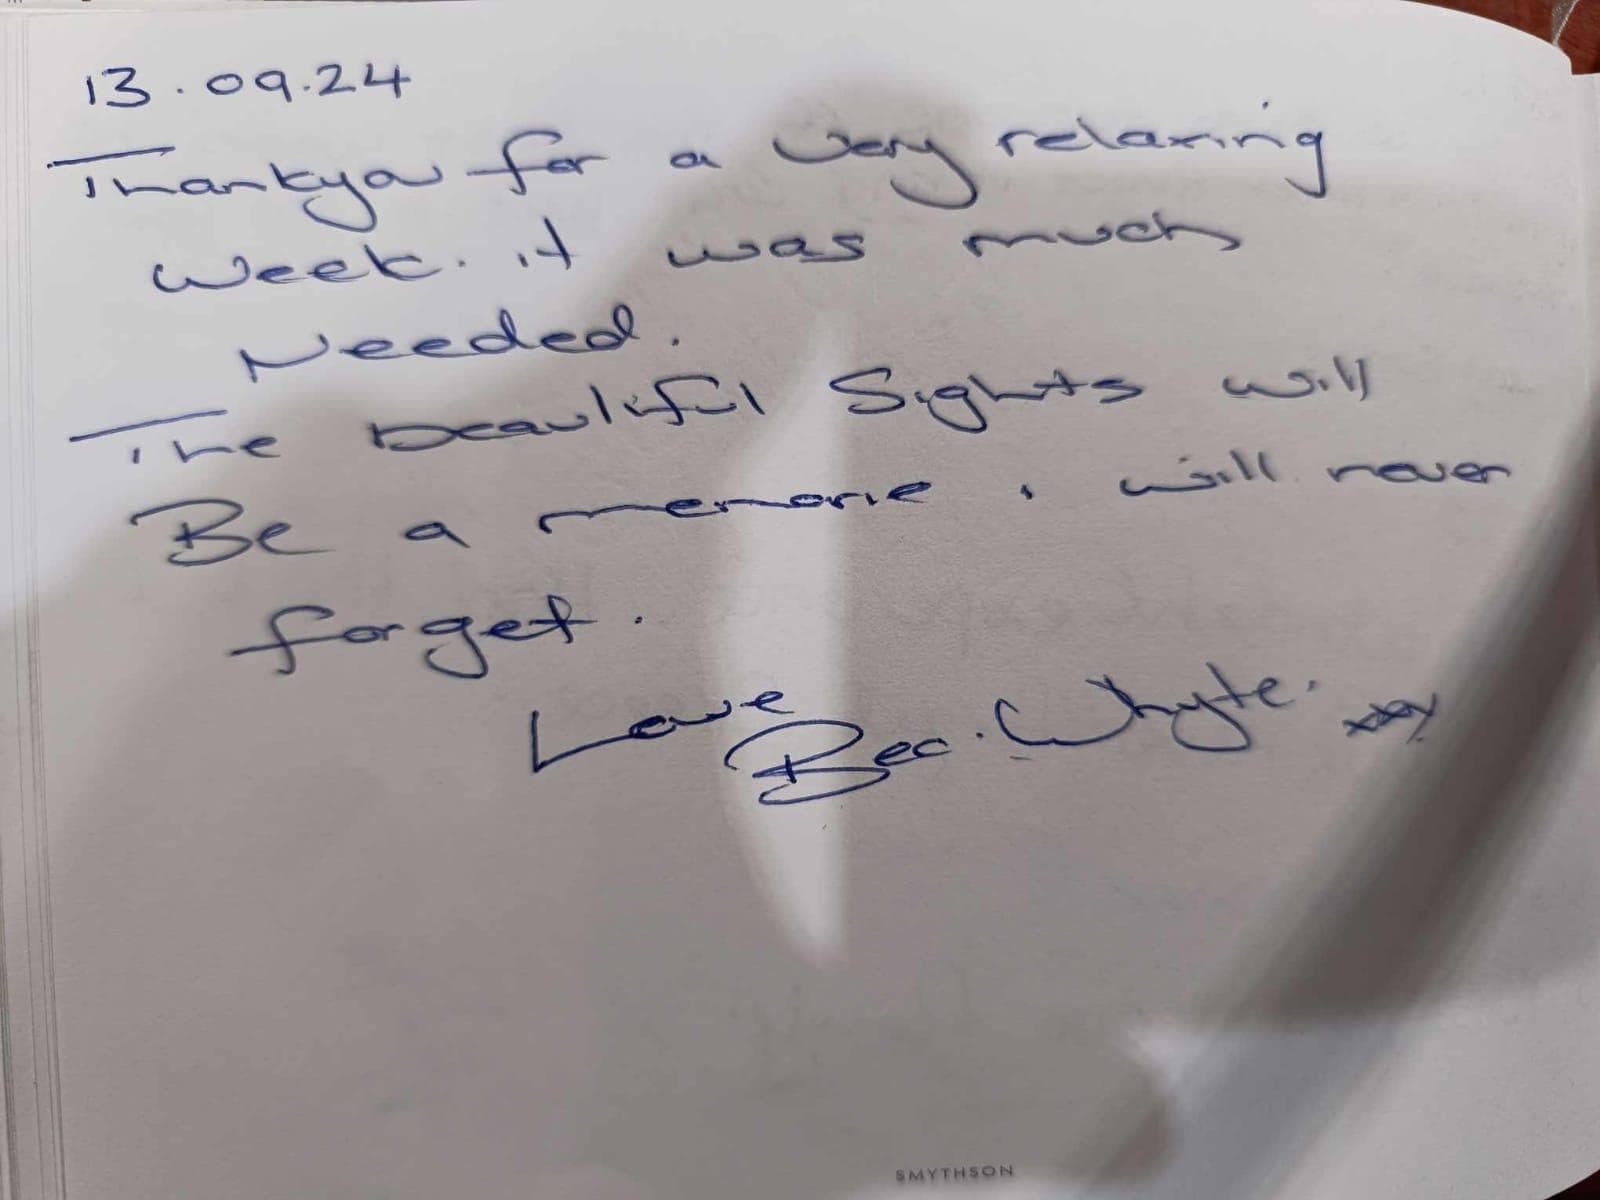 13.09.24
Thankyou for a very relaxing
week. it was much
Needed.
The beautiful Sights will
Be a memorie i will never
forget.
Love
Bec. Whyte. xxx
SMYTHSON